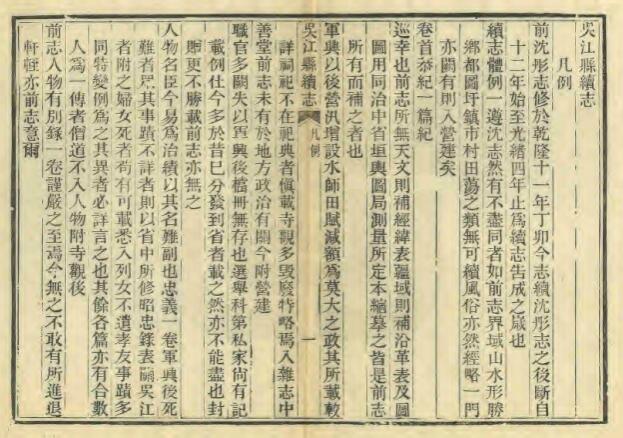 吳江縣續志
凡例
前沈彤志修於乾隆十一年丁卯今志續沈彤志之後斷自
十二年始至光緒四年止爲續志告成之歲也
續志體例一遵沈志然有不盡同者如前志界域山水形勝
鄉都圖圩鎮市村田蕩之類無可續風俗亦然經略一門
亦闕有則入營建矣
卷首恭紀一篇紀
巡幸也前志所無天文則補經緯表疆域則補沿革表及圖
圖用同治中省垣輿圖局測量所定本縮摹之皆是前志
所有而補之者也
軍興以後營汛增設水師田賦減額爲莫大之政其所載較
吳江縣續志
凡例
一
詳祠祀不在祀典者慎載寺觀多毀廢特略焉入雜志中
善堂前志未有於地方政治有關今附營建
職官多闕失以軍興後檔冊無存也選舉科第私家尚有記
載例仕今多於昔巳分發到省者載之然亦不能盡也封
贈更不勝載前志亦無之
人物名臣今易爲治績以其名難副也忠義一卷軍興後死
難者居其事蹟不詳者則以省中所修昭忠錄表
吳江
者附之婦女死者苟有可載悉入列女不遺孝友事蹟多
同特變例爲之其異者必詳言之也其餘各篇亦有合數
人爲一傳者僧道不入人物附寺觀後
前志人物有別錄一卷謹嚴之至焉今無之不敢有所進退
軒輊亦前志意爾